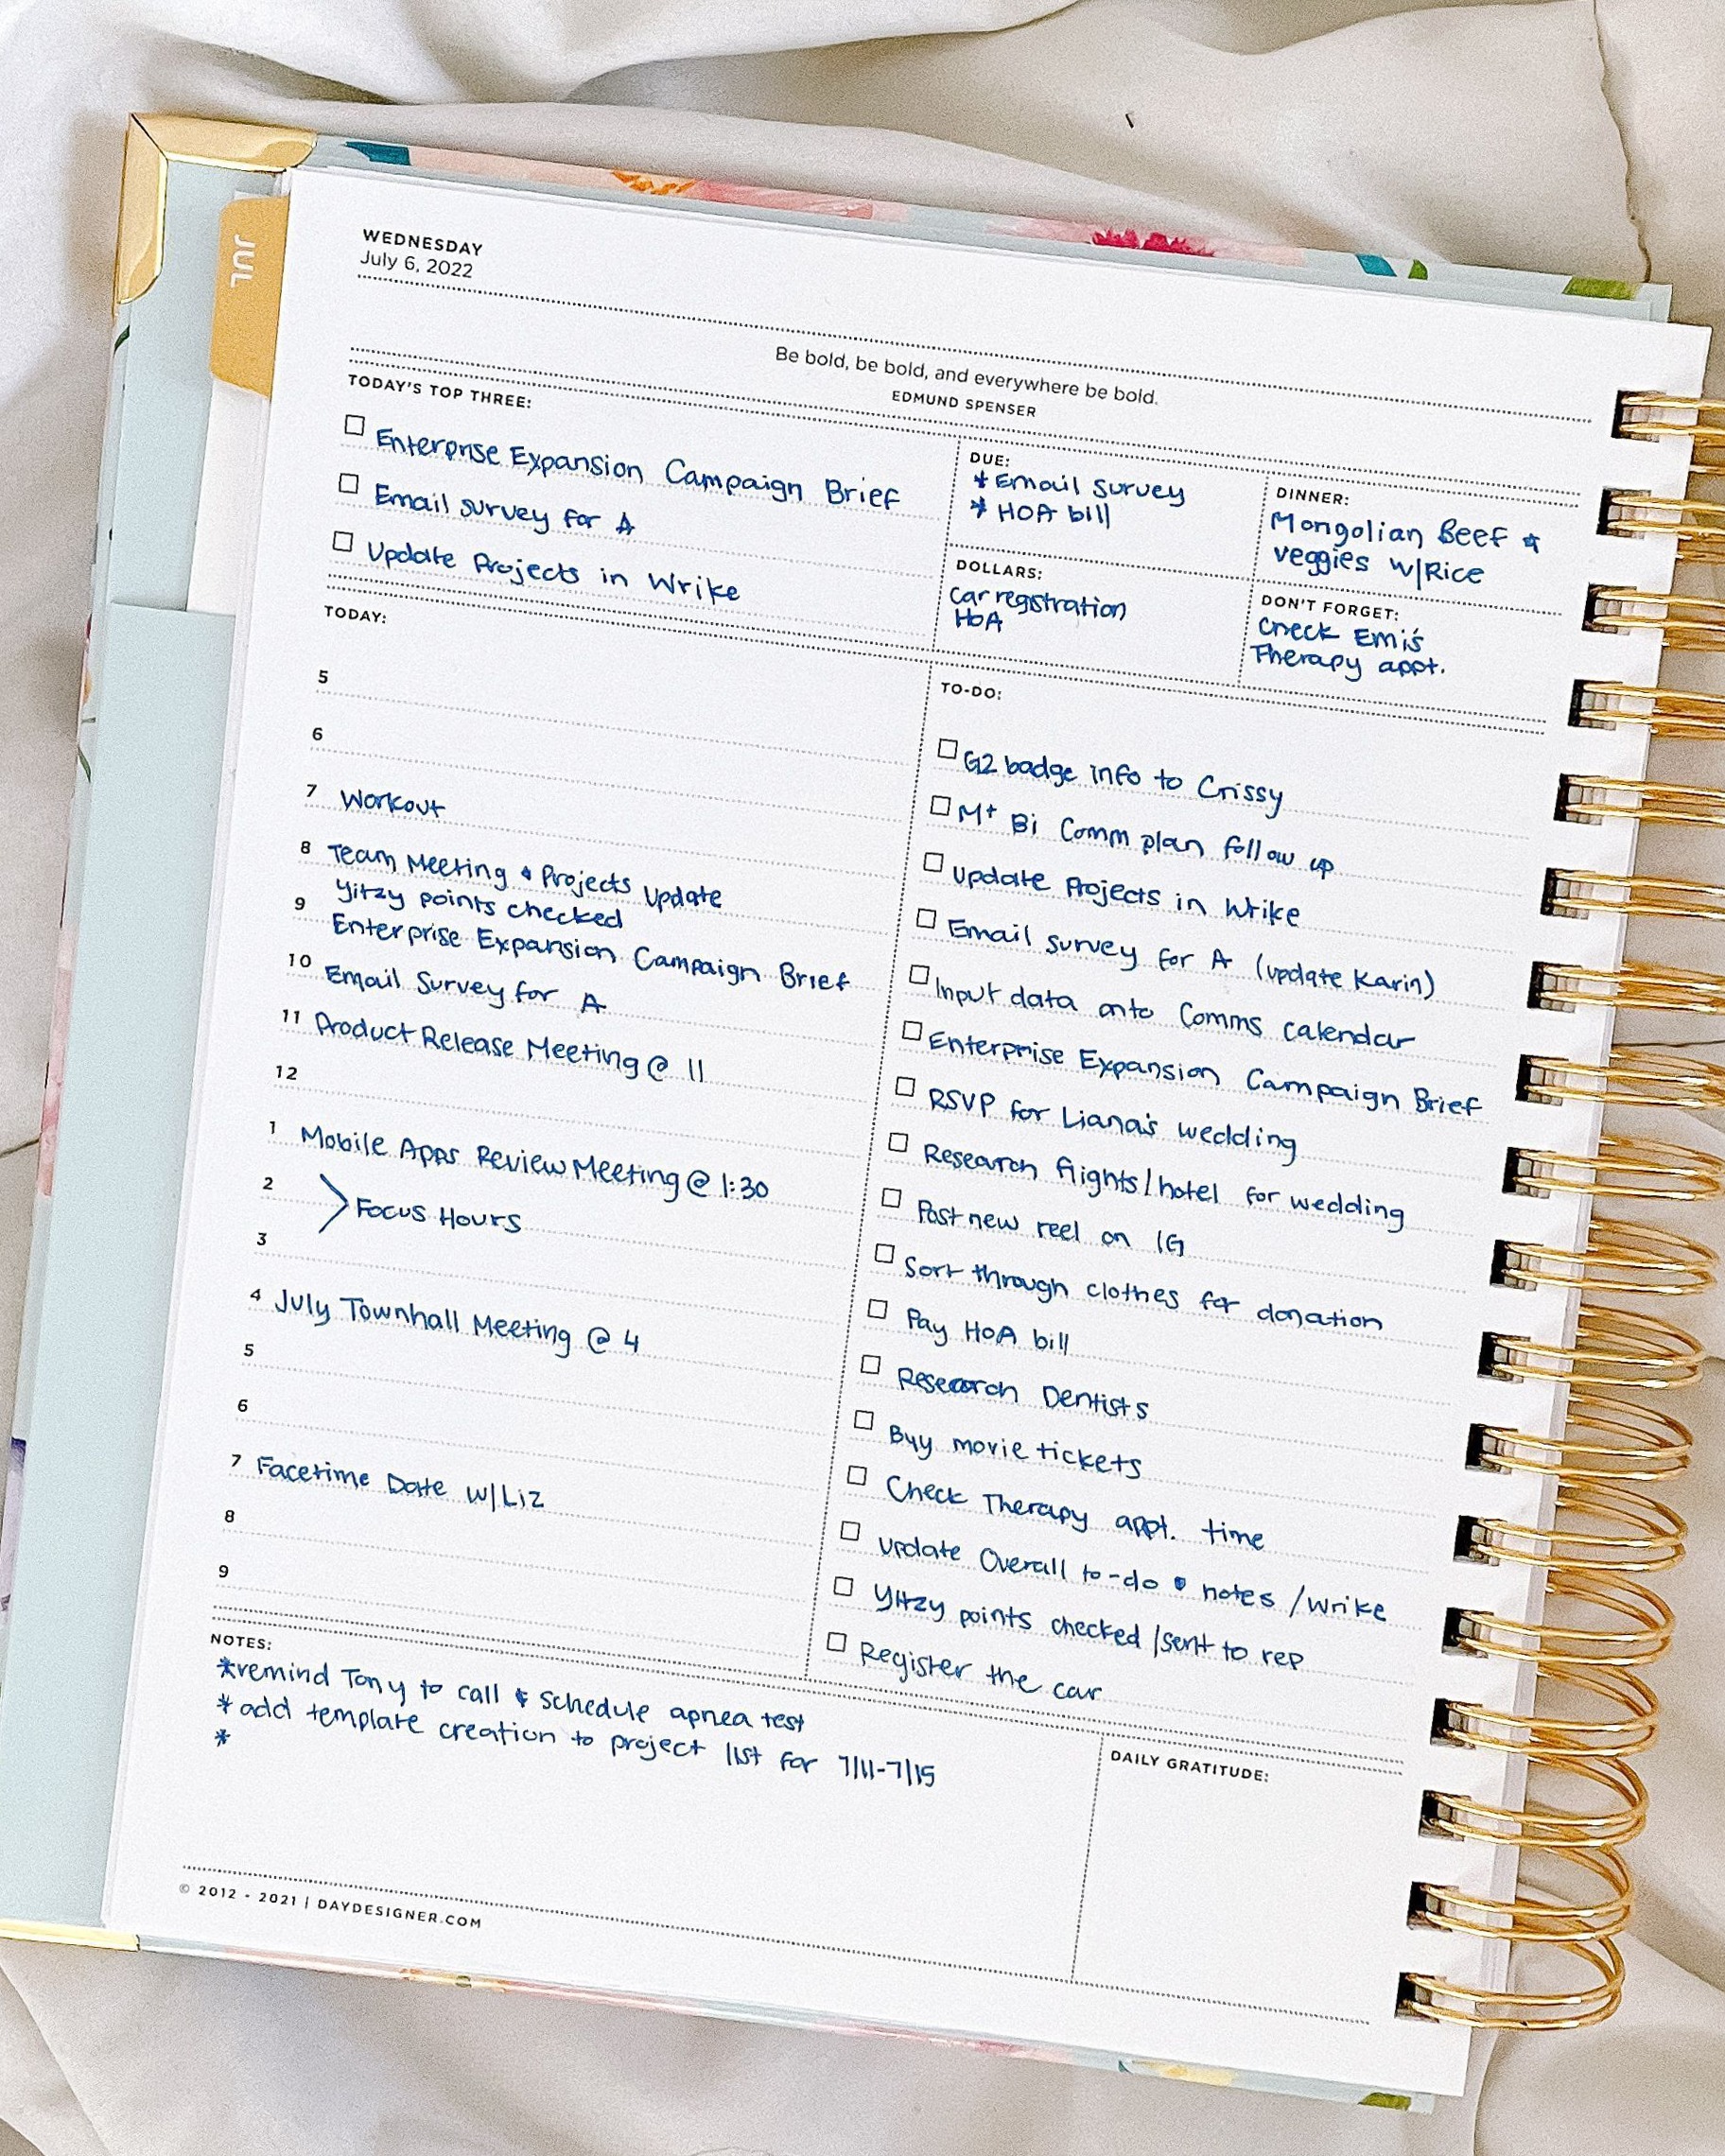 JUL
WEDNESDAY
July 6, 2022
Be bold, be bold, and everywhere be bold.
EDMUND SPENSER
TODAY'S TOP THREE:
Enterprise Expansion Campaign Brief
Email survey for A
Update Projects in Wrike
DUE:
* Email survey
* HOA bill
DINNER:
Mongolian Beef &
veggies w/Rice
DOLLARS:
car registration
HOA
DON'T FORGET:
Check Emi's
Therapy appt.
TODAY:
5
6
7 Workout
8 Team Meeting & Projects Update
Yitzy points checked
9 Enterprise Expansion Campaign Brief
10 Email Survey for A
11 Product Release Meeting @ 11
12
1 Mobile Apps Review Meeting @ 1:30
2
Focus Hours
3
4 July Townhall Meeting @ 4
5
6
7 Facetime Date w/Liz
8
9
TO-DO:
G2 badge info to Crissy
Mt Bi Comm plan follow up
Update Projects in Wrike
Email survey for A (update Karin)
Input data onto Comms calendar
Enterprise Expansion Campaign Brief
RSVP for Liana's wedding
Research flights/hotel for wedding
Post new reel on IG
Sort through clothes for donation
Pay HOA bill
Research Dentists
Buy movie tickets
Check Therapy appt. time
Update Overall to-do notes /Wrike
Yitzy points checked /sent to rep
Register the car
NOTES:
*remind Tony to call & schedule apnea test
*add template creation to project list for 7/11-7/15
*
DAILY GRATITUDE:
© 2012 - 2021 | DAYDESIGNER.COM